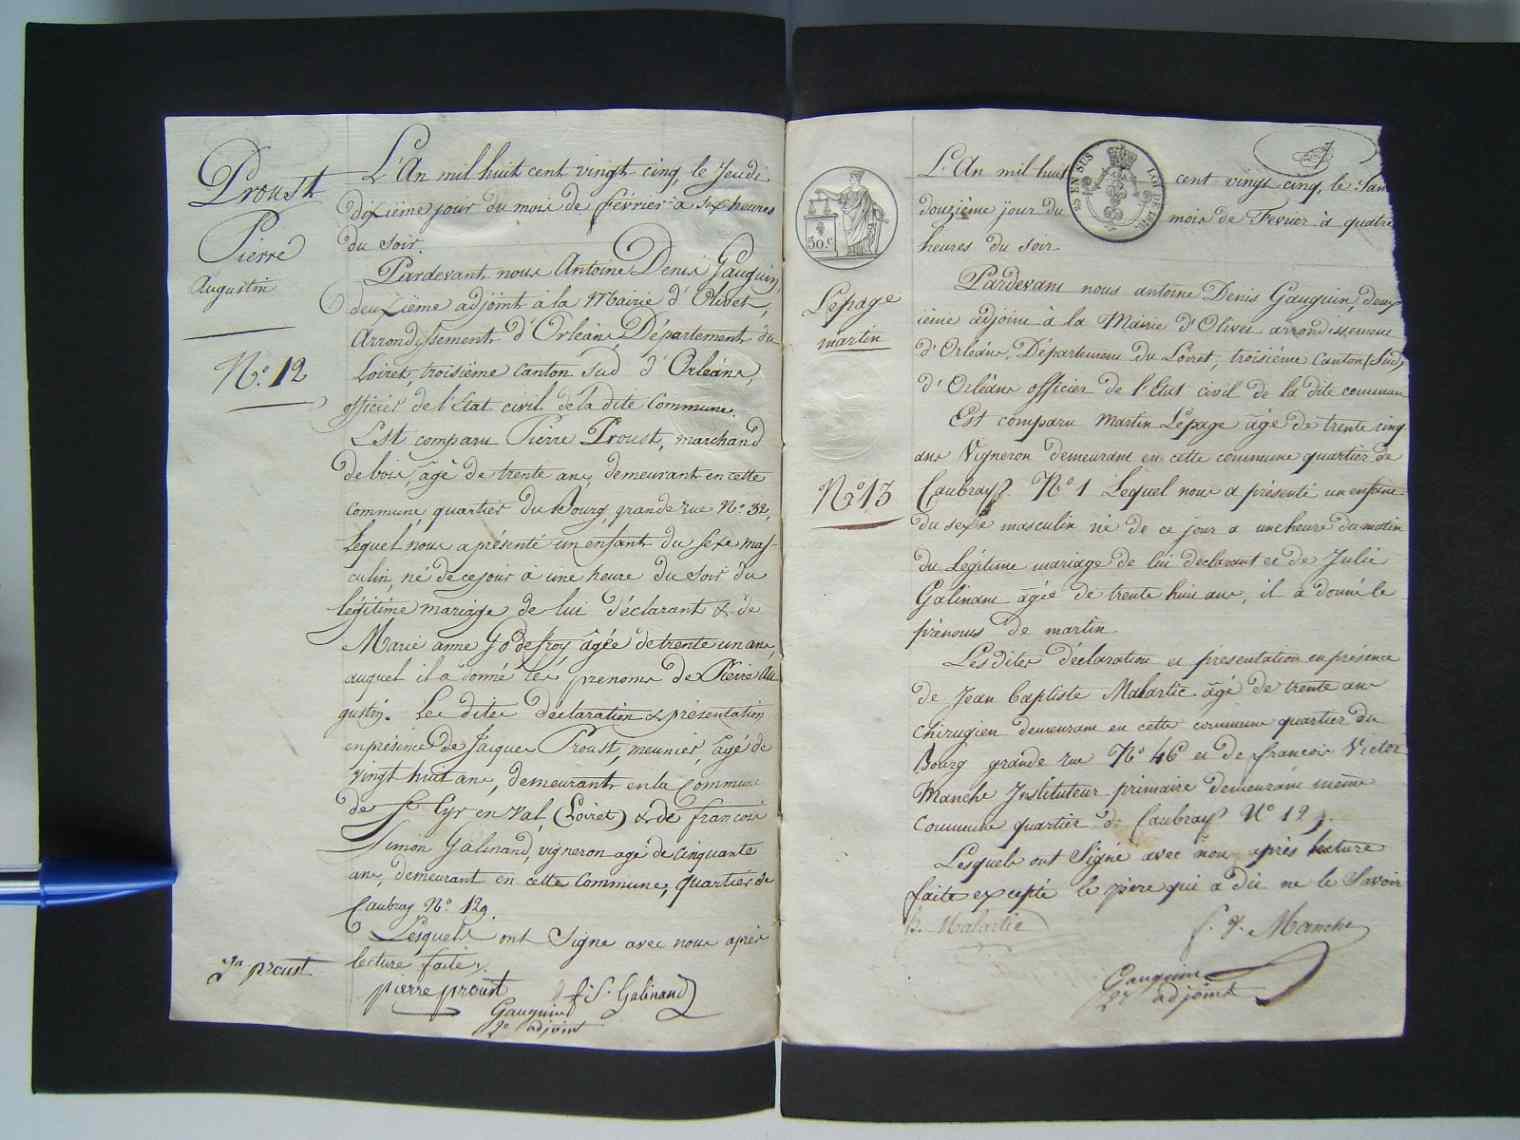 Proust
Pierre
Augustin
N.º 12
L'An mil huit cent vingt cinq, le Jeudi
dixième jour du mois de février à six heures
du soir.
Pardevant nous Antoine Denis Gauguin
deuxième adjoint à la Mairie d'Olivet,
Arrondissement d'Orléans Département du
Loiret, troisième canton Sud d'Orléans,
officier de l'état civil de la dite Commune.
Est comparu Pierre Proust, marchand
de bois, âgé de trente ans, demeurant en cette
commune quartier du Bourg, grande rue N.º 32,
Lequel nous a présenté un enfant du sexe mas-
culin, né de ce jour à une heure du soir du
légitime mariage de lui déclarant & de
Marie anne Godefroy âgée de trente un ans,
auquel il a donné les prenoms de Pierre Au
gustin. Les dites déclaration & présentation
en présence de Jacques Proust, meunier, âgé de
vingt huit ans, demeurant en la Commune
de St Cyr en val, (Loiret) & de françois
Simon Galinand, vigneron agé de cinquante
ans, demeurant en cette Commune, quartier de
Caubray N.º 129.
Lesquels ont Signé avec nous après
lecture faite.
Jn proust
pierre proust
f. S. Galinand
Gauguin
2e adjoint
Lepage
martin
Nº 13
30.c
25 EN SUS
L'An mil huit cent vingt cinq, le Sam
douzième jour du mois de Fevrier à quatre
heures du soir.
Pardevant nous antoine Denis Gauguin, deux
ième adjoint à la Mairie d'Olivet arrondissement
d'Orléans, Département du Loiret, troisième Canton (Sud)
d'Orléans officier de l'Etat civil de la dite commune
Est comparu Martin Lepage âgé de trente cinq
ans Vigneron demeurant en cette commune quartier de
Caubray. Nº 1 Lequel nous a présenté un enfant
du sexe masculin né de ce jour a une heure du matin
du Légitime mariage de lui declarant et de Julie
Galinand agée de trente huit ans, il a donné le
prénoms de martin
Les dites déclaration et présentation en présence
de Jean Baptiste Malartic âgé de trente ans
chirugien demeurant en cette commune quartier du
Bourg grande rue Nº 46 et de francois Victor
Manche Instituteur primaire demeurant même
commune quartier de Caubray Nº 129.
Lesquels ont Signé avec nous après lecture
faite excepté le père qui a dit ne le Savoir
B. Malartic
f. V. Manche
Gauguin
2e adjoint